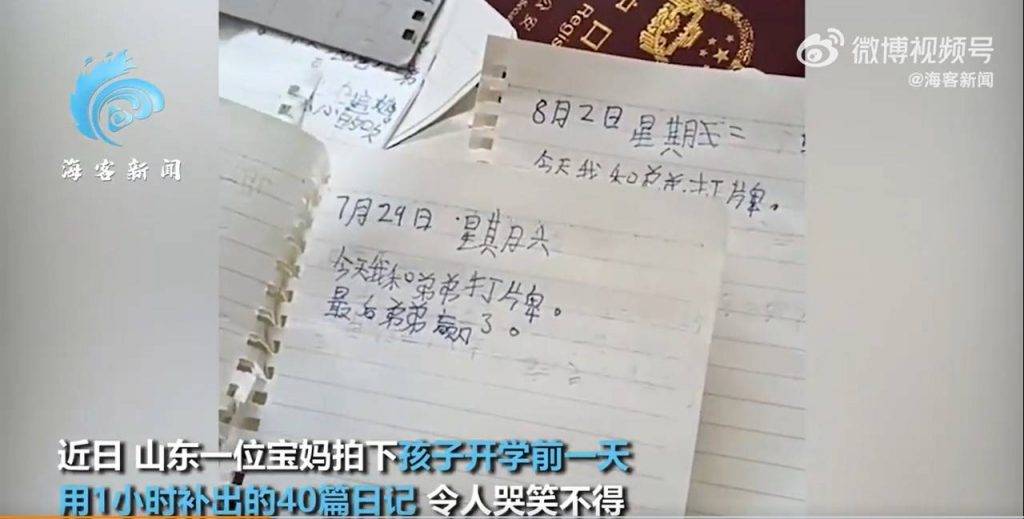 微博视频号
@海客新闻
海客新闻
Regis
8月2日 星期三
今天我和弟弟打牌。
7月29日 星期六
今天我和弟弟打牌。
最后弟弟赢了。
近日 山东一位宝妈拍下孩子开学前一天
用1小时补出的40篇日记 令人哭笑不得